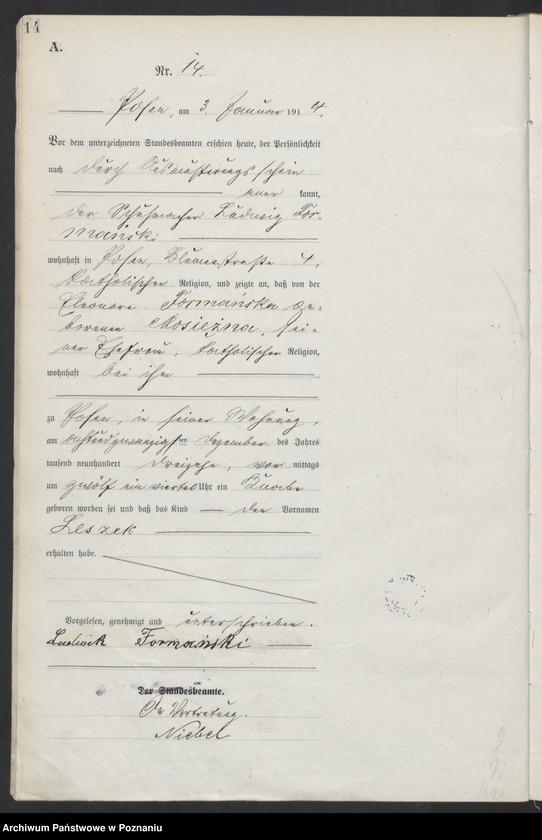 14
A.
Nr. 14.
Posen, am 3. Januar 1914.
Vor dem unterzeichneten Standesbeamten erschien heute, der Persönlichkeit
nach durch Ausmusterungsschein
aner kannt,
der Schuhmacher Ludwig For-
mański
wohnhaft in Posen, Blumenstraße 4,
katholischer Religion, und zeigte an, daß von der
Eleonore Formańska ge-
borenen Mosiężna, sei-
ner Ehefrau, katholischer Religion,
wohnhaft bei ihm
zu Posen, in seiner Wohnung,
am achtundzwanzigsten Dezember des Jahres
tausend neunhundert dreizehn, vor mittags
um zwölf ein viertel Uhr ein Knabe
geboren worden sei und daß das Kind den Vornamen
Leszek
erhalten habe.
Vorgelesen, genehmigt und unterschrieben.
Ludwik Formański
Der Standesbeamte.
In Vertretung.
Niebel
Archiwum Państwowe w Poznaniu